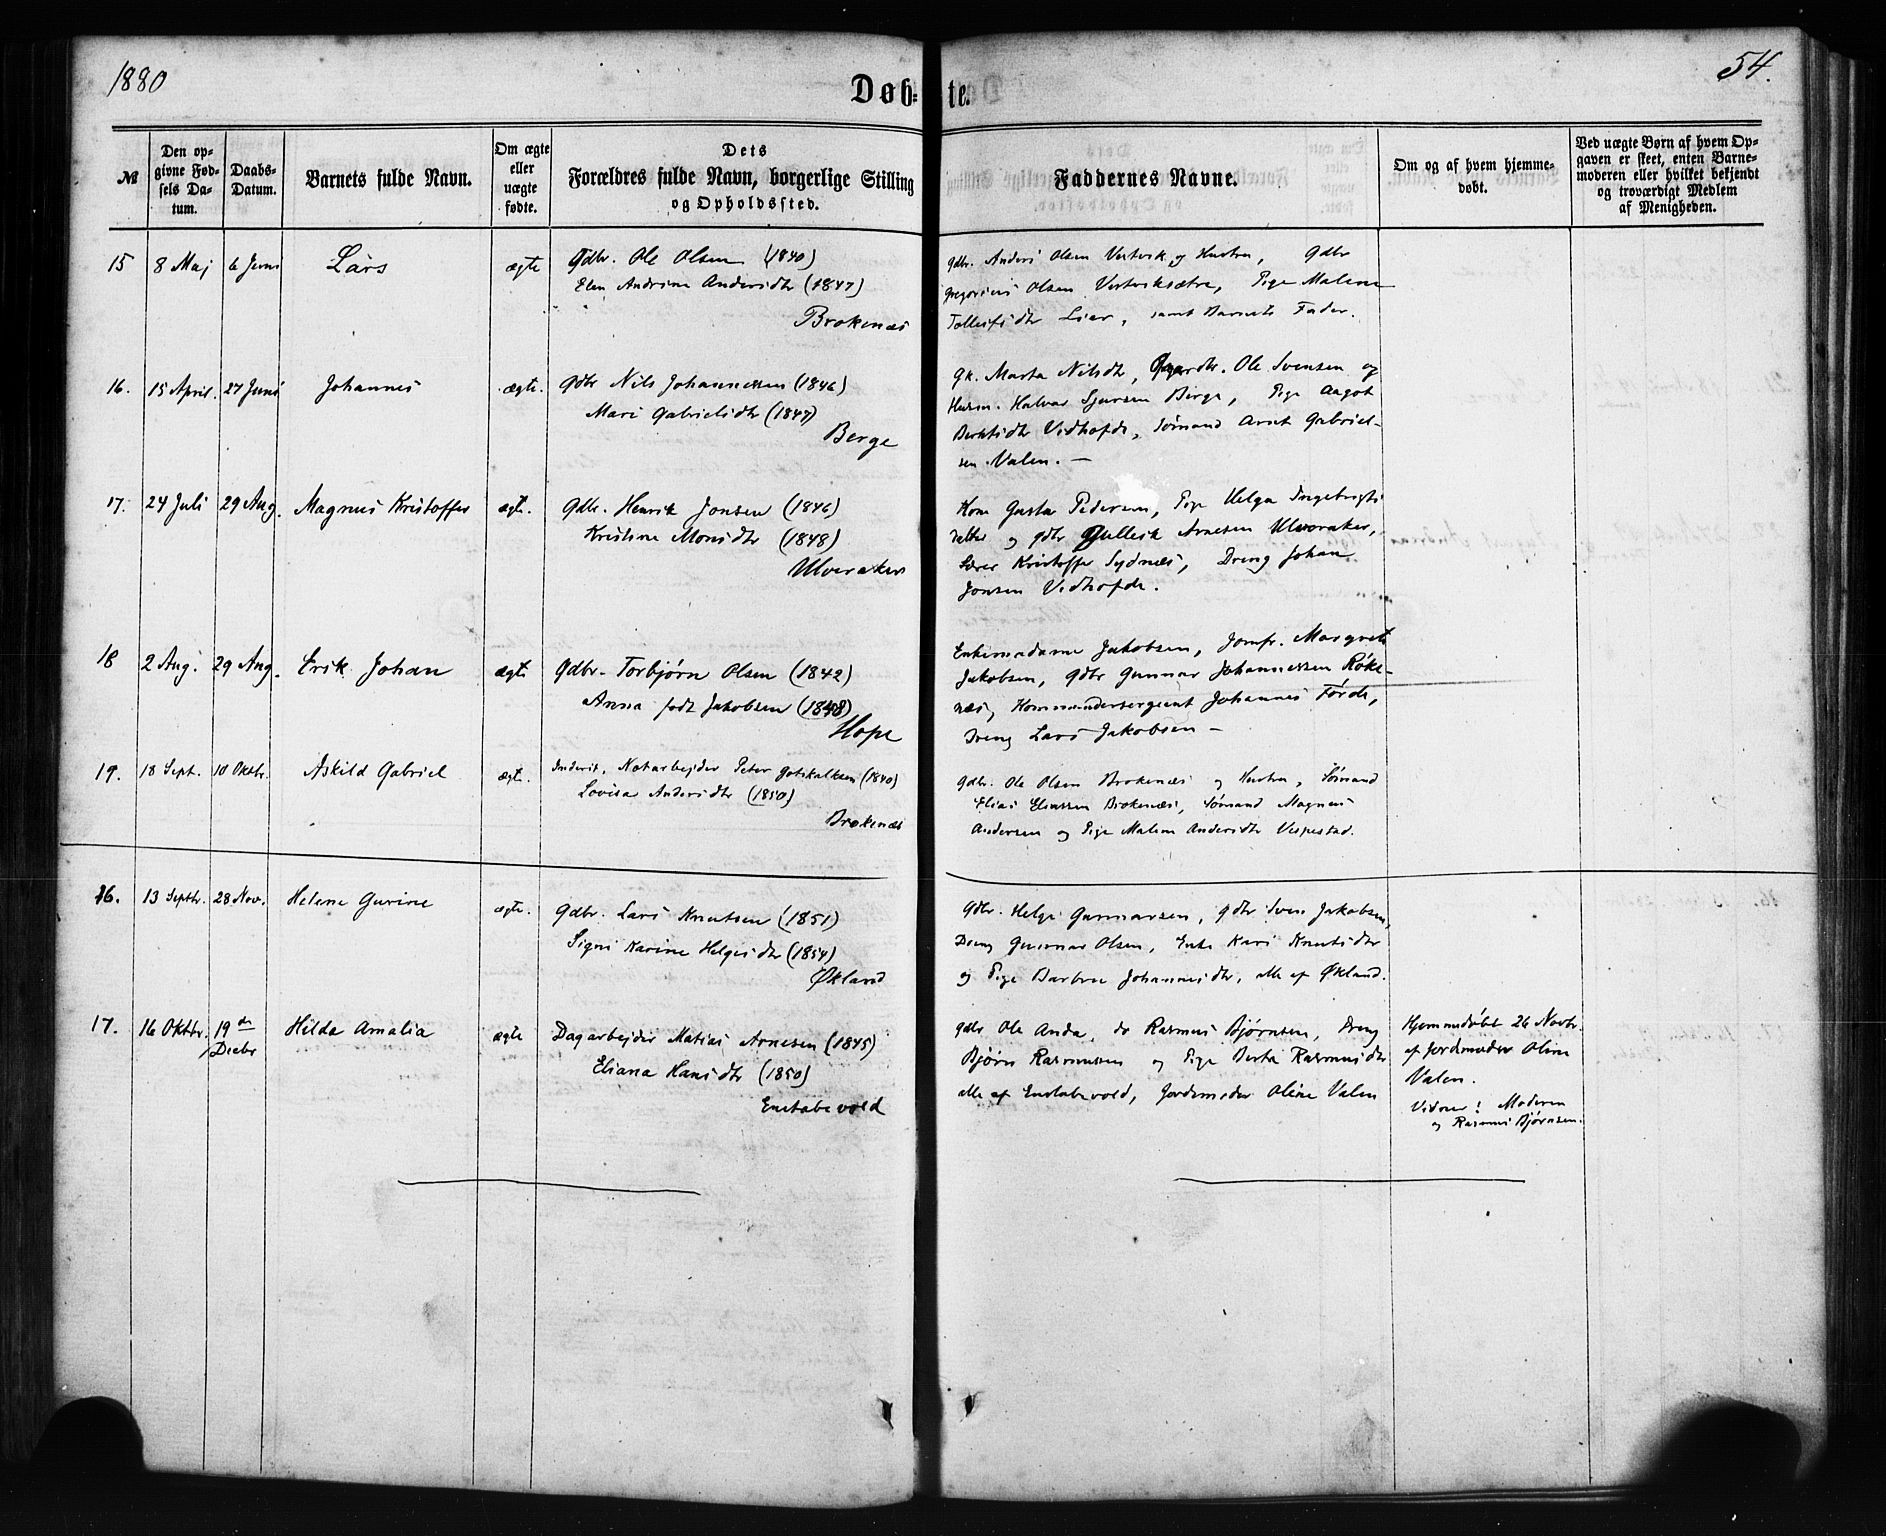 1880
54.
Døb-
te.
№
Den op-
givne Fød-
sels Da-
tum.
Daabs-
Datum.
Barnets fulde Navn.
Om ægte
eller
uægte
fødte.
Dets
Forældres fulde Navn, borgerlige Stilling
og Opholdssted.
Faddernes Navne.
Om og af hvem hjemme-
døbt.
Ved uægte Børn af hvem Op-
gaven er skeet, enten Barne-
moderen eller hvilket bekjendt
og troværdigt Medlem
af Menigheden.
15 8 Maj 6 Juni Lars ægte Gdbr. Ole Olsen (1840)
Elen Andrine Andersdtr (1847)
Brokenæs
Gdbr. Anders Olsen Vestvik og Hustru, Gdbr
Gregorius Olsen Vestviksætre, Pige Malene
Tollefsdtr Lier, samt Barnets Fader.
16. 15 April. 27 Juni Johannes ægte. Gdbr Nils Johannessen (1846)
Mari Gabrielsdtr (1847)
Berge
Gk. Marta Nilsdtr, Ole Svensen og
Husm. Halvar Sjursen Berge, Pige Aagot
Berntsdtr Vidhofde, Sømand Arnt Gabriel-
sen Valen. —
17. 24 Juli 29 Aug. Magnus Kristoffer ægte. Gdbr. Henrik Jonsen (1846)
Kristine Monsdtr (1848)
Ulveraker
Kone Gurta Pedersen, Pige Helga Ingebrigts
datter og gdbr Gulleik Arnesen Ulveraker,
Lærer Kristoffer Sydnæs, Dreng Johan
Jonsen Vidhofde.
18 2 Aug. 29 Aug. Erik Johan ægte Gdbr. Torbjørn Olsen (1842)
Anna født Jakobsen (1848)
Hope
Enkemadame Jakobsen, Jomfr. Margrete
Jakobsen, gdbr Gunnar Johannessen Røke-
næs, Kommandersergeant Johannes Førde,
Dreng Lars Jakobsen —
19. 18 Sept. 10 Oktbr. Askild Gabriel ægte. Inderst, Notarbejder Peter Gotskalksen (1840)
Lovisa Andersdtr (1850)
Brokenæs
Gdbr. Ole Olsen Brokenæs og Hustru, Sømand
Elias Eliassen Brokenæs, Sømand Magnus
Andersen og Pige Malene Andersdtr Vespestad.
16. 13 Septbr. 28 Nov. Helene Gurine ægte. Gdbr. Lars Knutsen (1851)
Signi Karine Helgesdtr (1854)
Økland
Gdbr. Helge Gunnarsen, gdbr Sven Jakobsen,
Dreng Gunnar Olsen, Enke Kari Knutsdtr
og Pige Barbru Johannesdtr, alle af Økland.
17. 16 Oktbr. 19de
Decbr Hilda Amalia ægte Dagarbejder Matias Arnesen (1845)
Eliana Hansdtr (1850)
Enstabevold
gdbr Ole Anda, do Rasmus Bjørnsen, Dreng
Bjørn Rasmussen og Pige Berta Rasmusdtr
alle af Enstabevold, Jordemoder Oline Valen
Hjemmedøbt 26 Novbr.
af Jordemoder Oline
Valen.
Vidner: Moderen
og Rasmus Bjørnsen.